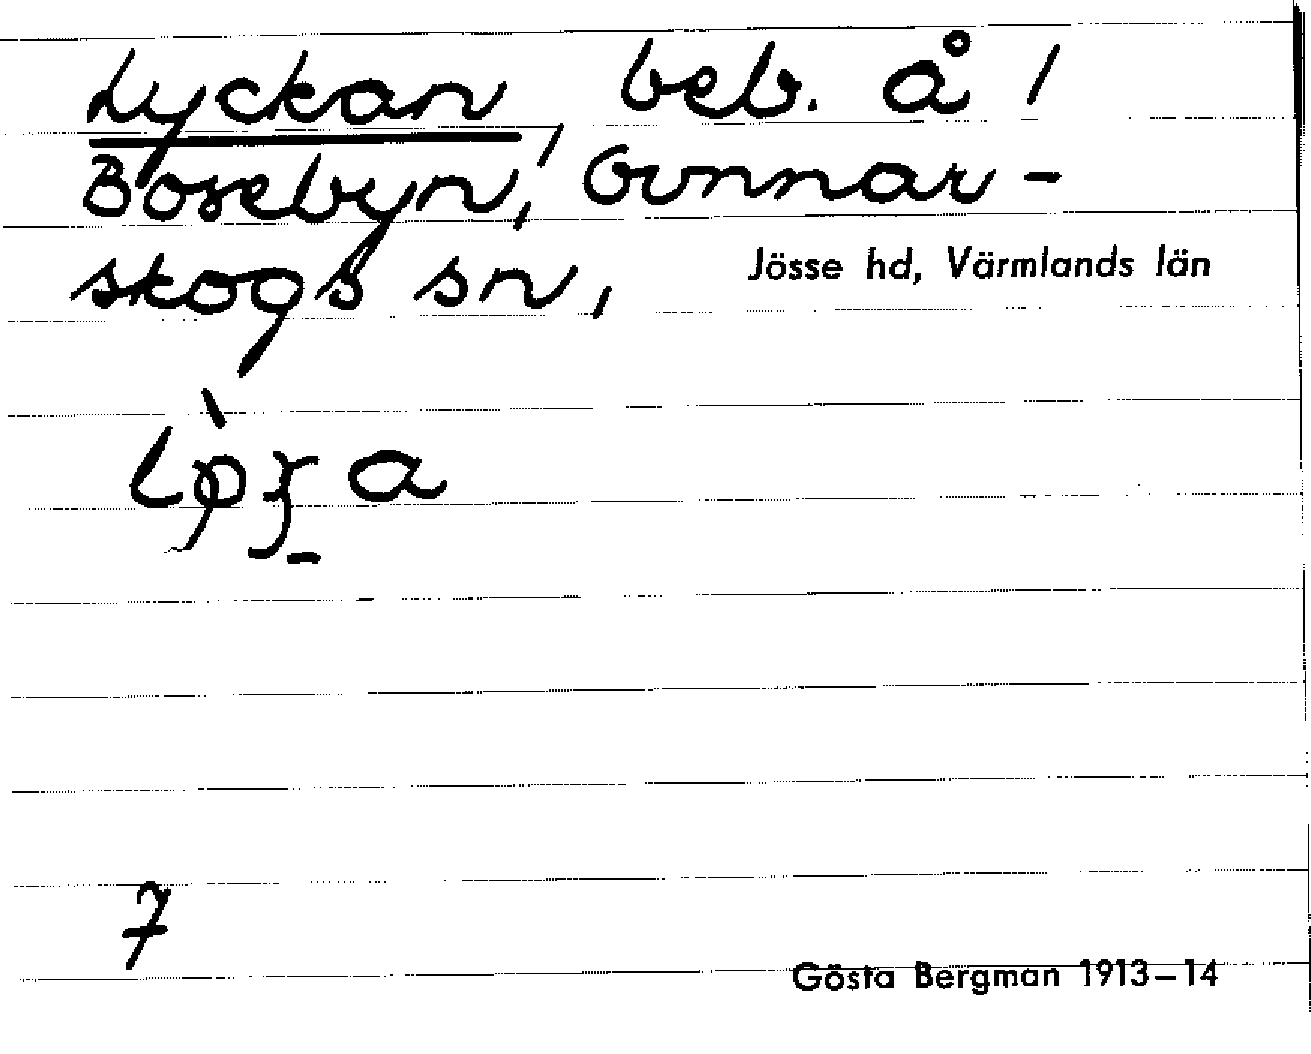 Lyckan, beb. å /
Bosebyn, Gunnar-
skogs sn, Jösse hd, Värmlands län
7
Gösta Bergman 1913–14